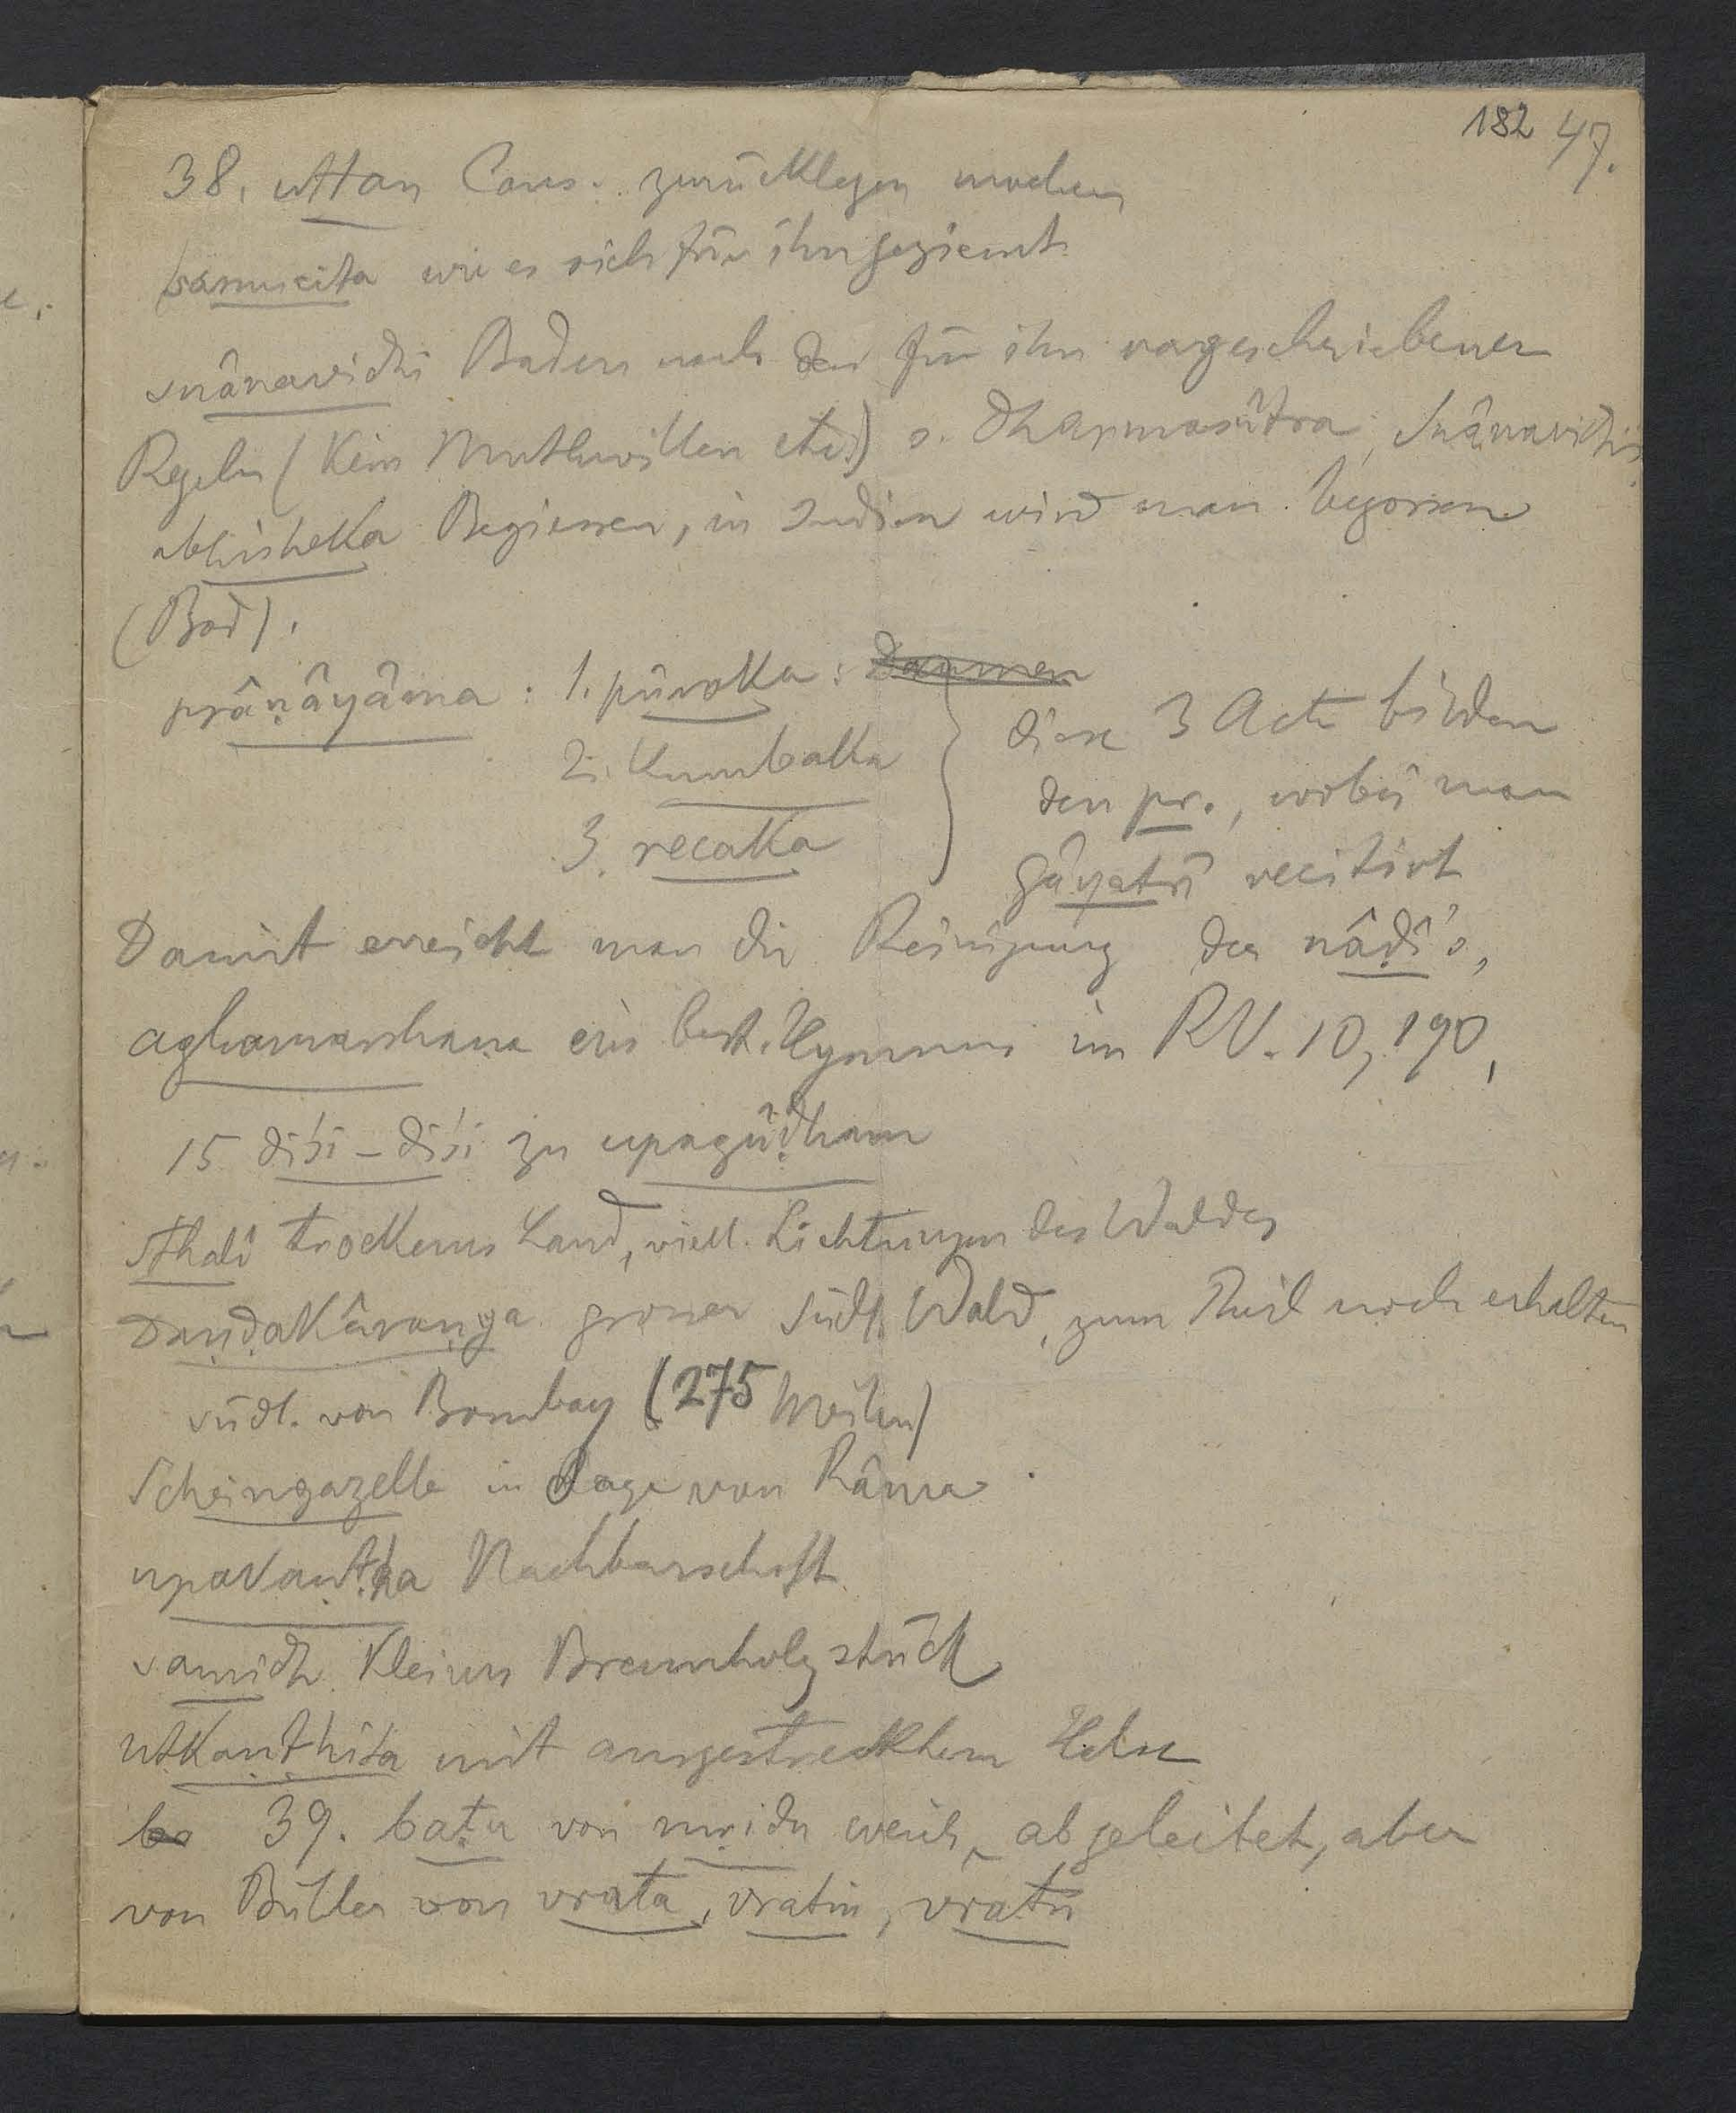 182 47.
38. uttan Caus. zurücklegen machen
samucita wie es sich für ihn geziemt
snânavidhi Baden nach den für ihn vorgeschriebenen
Regeln (kein Muthwillen etc.) s. Dharmasûtra, Snânavidhi
abhisheka Begiessen, in Indien wird man begossen
(Bad).
prâṇâyâma: 1. pûraka:
2. kumbaka
3. recaka
diese 3 Acte bilden
den pr., wobei man
Gâyatrî recitirt
Damit erreicht man die Reinigung der nâḍî's,
aghamarshaṇa ein best. Hymnus im RV. 10, 190,
15 diśi-diśi zu upagûḍham
sthalî trockenes Land, viell. Lichtungen des Waldes
Daṇḍakâraṇya grosser südl. Wald, zum Theil noch erhalten
südl. von Bombay (275 Meilen)
Scheingazelle in Sage von Râma.
upakaṇṭha Nachbarschaft
samidh kleines Brennholzstück
utkaṇṭhita mit ausgestrecktem Halse
ba 39. baṭu von mṛidu weich, abgeleitet, aber
von Bühler von vrata, vratin, vratu